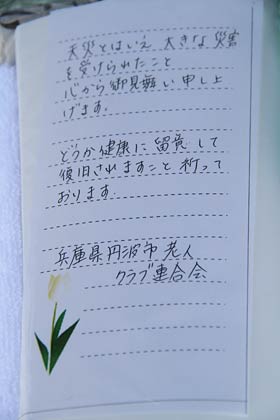 天災とはいえ 大きな災害
を受けられたこと
心から御見舞い申し上
げます.
どうか健康に留意して
復旧されますこと祈って
おります.
兵庫県丹波市老人
クラブ連合会